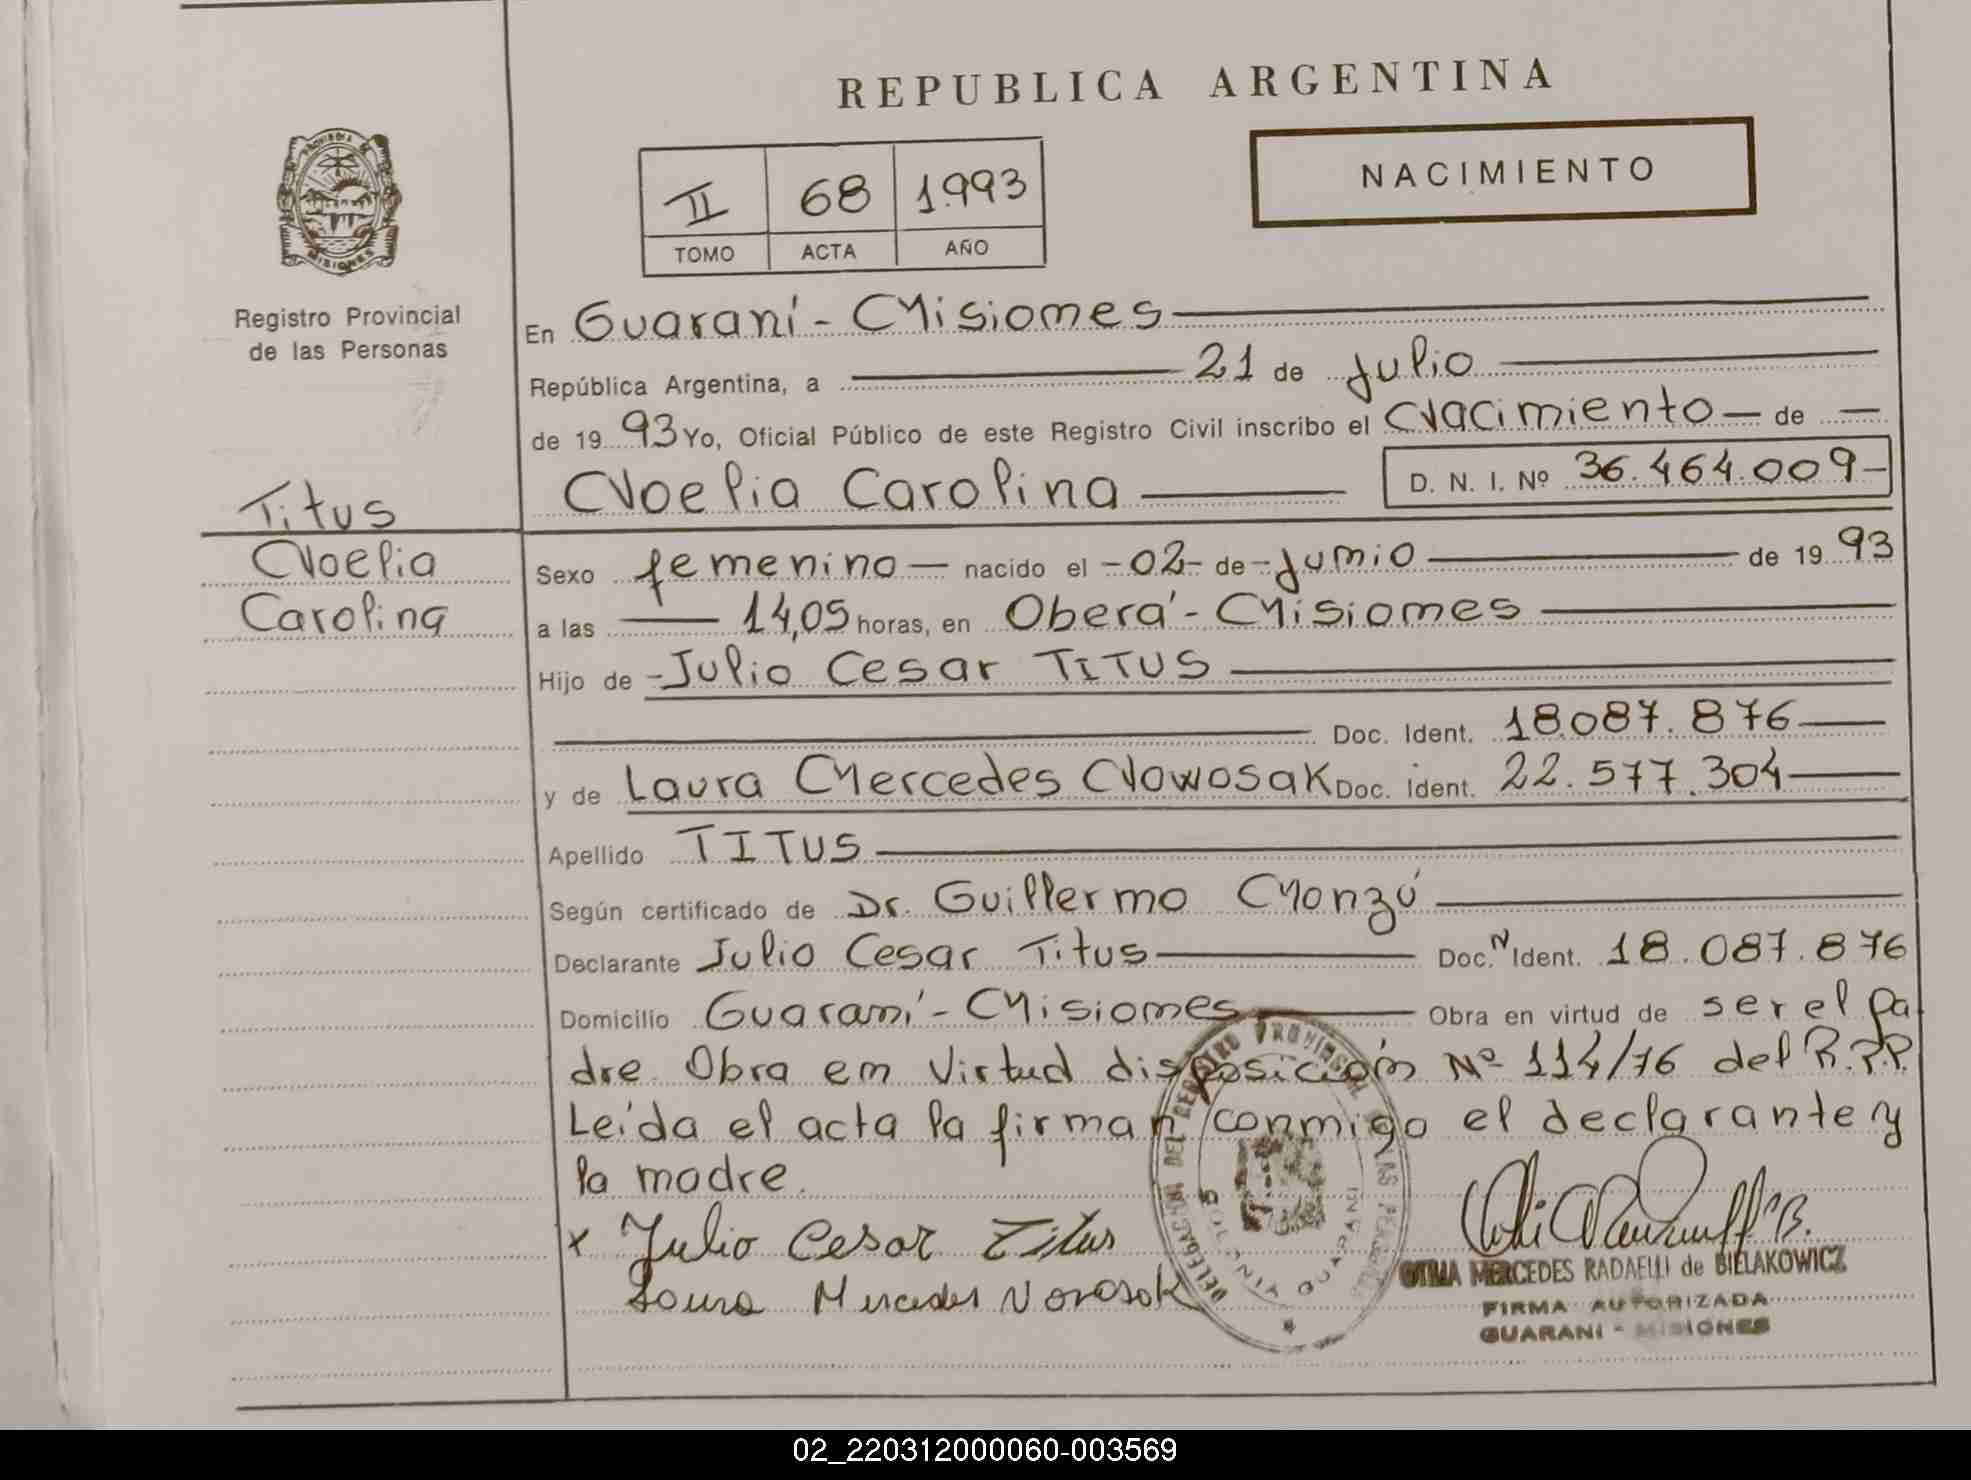 REPUBLICA ARGENTINA
NACIMIENTO
II 68 1.993
TOMO ACTA AÑO
PROVINCIA DE MISIONES
Registro Provincial
de las Personas
Titus
Noelia
Carolina
En Guaraní - Misiones
República Argentina, a 21 de julio
de 19 93 Yo, Oficial Público de este Registro Civil inscribo el Nacimiento - de -
Noelia Carolina D. N. I. Nº 36.464.009-
Sexo femenino - nacido el - 02 - de - junio de 19 93
a las 14,05 horas, en Oberá - Misiones
Hijo de - Julio Cesar TITUS
Doc. Ident. 18.087.876
y de Laura Mercedes Nowosak Doc. Ident. 22.577.304
Apellido TITUS
Según certificado de Dr. Guillermo Monzú
Declarante Julio Cesar Titus Doc. N Ident. 18.087.876
Domicilio Guaraní - Misiones Obra en virtud de ser el pa
dre. Obra em Virtud disposición Nº 114/76 del R.P.P.
Leída el acta la firman conmigo el declarante y
la madre.
x Julio Cesar Titus
Laura Mercedes Novosak
DELEGACION DEL REGISTRO PROVINCIAL DE LAS PERSONAS
GUARANI
MERCEDES RADAELLI de BIELAKOWICZ
FIRMA AUTORIZADA
GUARANI - MISIONES
02_220312000060-003569